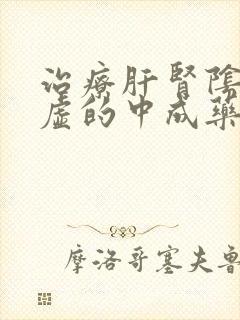 治療肝腎陰
虛的中成藥
摩洛哥塞夫魯